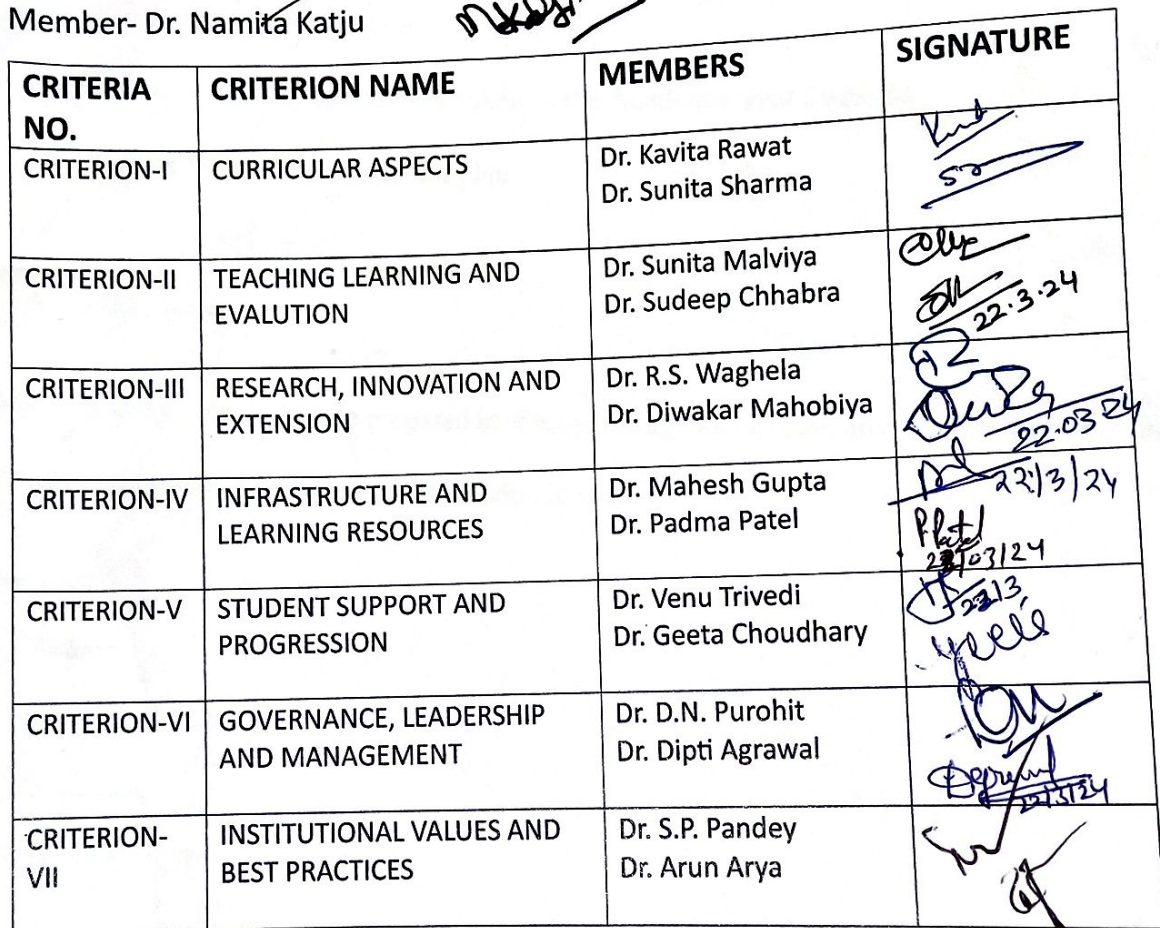 Member- Dr. Namita Katju
CRITERIA NO.
CRITERION NAME
MEMBERS
SIGNATURE
CRITERION-I
CURRICULAR ASPECTS
Dr. Kavita Rawat
Dr. Sunita Sharma
CRITERION-II
TEACHING LEARNING AND
EVALUTION
Dr. Sunita Malviya
Dr. Sudeep Chhabra
22.3.24
CRITERION-III
RESEARCH, INNOVATION AND
EXTENSION
Dr. R.S. Waghela
Dr. Diwakar Mahobiya
22.03.24
CRITERION-IV
INFRASTRUCTURE AND
LEARNING RESOURCES
Dr. Mahesh Gupta
Dr. Padma Patel
22/3/24
P.Patel
22/03/24
CRITERION-V
STUDENT SUPPORT AND
PROGRESSION
Dr. Venu Trivedi
Dr. Geeta Choudhary
22/3
CRITERION-VI
GOVERNANCE, LEADERSHIP
AND MANAGEMENT
Dr. D.N. Purohit
Dr. Dipti Agrawal
22/3/24
CRITERION-
VII
INSTITUTIONAL VALUES AND
BEST PRACTICES
Dr. S.P. Pandey
Dr. Arun Arya